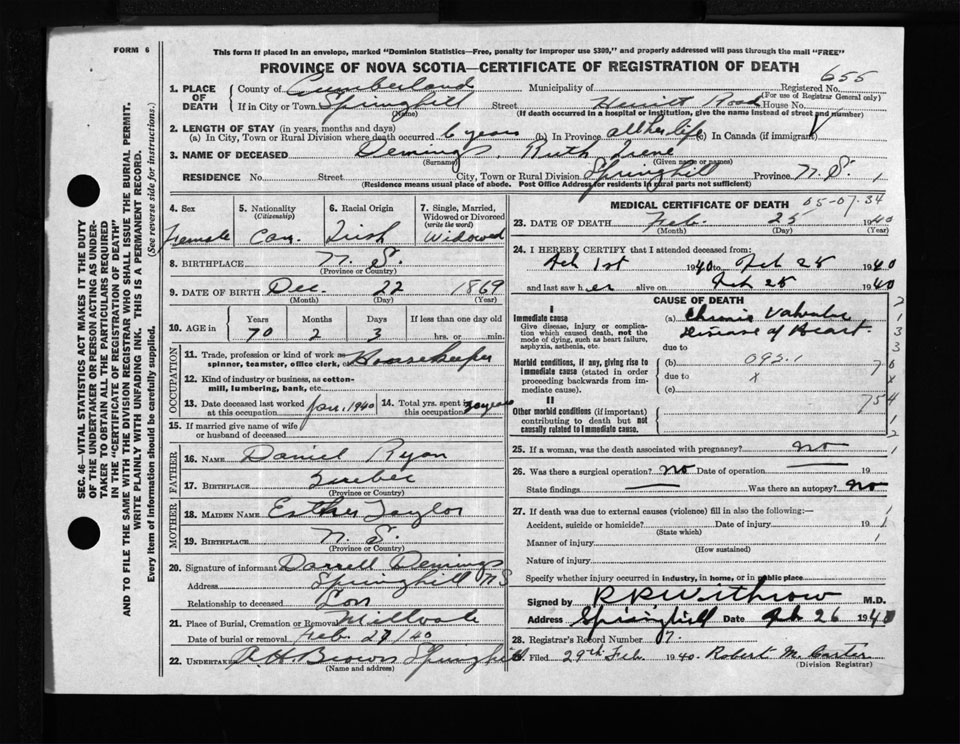 FORM 6
This form if placed in an envelope, marked "Dominion Statistics—Free, penalty for improper use $300," and properly addressed will pass through the mail "FREE"
PROVINCE OF NOVA SCOTIA—CERTIFICATE OF REGISTRATION OF DEATH
655
1. PLACE OF DEATH County of Cumberland Municipality of Registered No.
(For use of Registrar General only)
If in City or Town Springhill Street Herritt Road House No.
(Name) (If death occurred in a hospital or institution, give the name instead of street and number)
2. LENGTH OF STAY (in years, months and days)
(a) In City, Town or Rural Division where death occurred 6 years (b) In Province all her life (c) In Canada (if immigrant)
3. NAME OF DECEASED Demings, Ruth Irene
(Surname) (Given name or names)
RESIDENCE No. Street City, Town or Rural Division Springhill Province N.S.
(Residence means usual place of abode. Post Office Address for residents in rural parts not sufficient)
4. Sex Female
5. Nationality (Citizenship) Can.
6. Racial Origin Irish
7. Single, Married, Widowed or Divorced (write the word) Widowed
8. BIRTHPLACE N.S.
(Province or Country)
9. DATE OF BIRTH Dec. 22 1869
(Month) (Day) (Year)
10. AGE in Years Months Days If less than one day old
70 2 3 hrs. or min.
OCCUPATION
11. Trade, profession or kind of work as spinner, teamster, office clerk, etc. Housekeeper
12. Kind of industry or business, as cotton-mill, lumbering, bank, etc.
13. Date deceased last worked at this occupation Jan. 1940 14. Total yrs. spent in this occupation 50 years
15. If married give name of wife or husband of deceased
FATHER
16. NAME Daniel Ryan
17. BIRTHPLACE Quebec
(Province or Country)
MOTHER
18. MAIDEN NAME Esther Taylor
19. BIRTHPLACE N.S.
(Province or Country)
20. Signature of informant Darrell Demings
Address Springhill NS
Relationship to deceased Son
21. Place of Burial, Cremation or Removal Millvale
Date of burial or removal Feb. 27/40
22. Undertaker R.H. Brown Springhill
(Name and address)
MEDICAL CERTIFICATE OF DEATH 05-07-34
23. DATE OF DEATH Feb. 25 1940
(Month) (Day) (Year)
24. I HEREBY CERTIFY that I attended deceased from:
Feb 1st 1940 to Feb 25 1940
and last saw her alive on Feb 25 1940
CAUSE OF DEATH
I
Immediate cause (a) Chronic Valvular
Give disease, injury or complication which caused death, not the mode of dying, such as heart failure, asphyxia, asthenia, etc.
Disease of Heart
due to
Morbid conditions, if any, giving rise to immediate cause (stated in order proceeding backwards from immediate cause).
(b) 092.1
due to x
(c)
II
Other morbid conditions (if important) contributing to death but not causally related to immediate cause.
2
1
3
3
76
x
754
1
2
25. If a woman, was the death associated with pregnancy? No 1
26. Was there a surgical operation? No Date of operation 19
State findings Was there an autopsy? No
27. If death was due to external causes (violence) fill in also the following:—
Accident, suicide or homicide? Date of injury 19
(State which)
Manner of injury
(How sustained)
Nature of injury
Specify whether injury occurred in industry, in home, or in public place
Signed by R R Withrow M.D.
Address Springhill Date Feb 26 1940
28. Registrar's Record Number 7.
Filed 29th Feb. 1940. Robert M. Carter
(Division Registrar)
SEC. 46—VITAL STATISTICS ACT MAKES IT THE DUTY
OF THE UNDERTAKER OR PERSON ACTING AS UNDER-
TAKER TO OBTAIN ALL THE PARTICULARS REQUIRED
IN THE "CERTIFICATE OF REGISTRATION OF DEATH"
AND TO FILE THE SAME WITH THE DIVISION REGISTRAR WHO SHALL ISSUE THE BURIAL PERMIT.
WRITE PLAINLY WITH UNFADING INK. THIS IS A PERMANENT RECORD.
Every item of information should be carefully supplied. (See reverse side for instructions.)